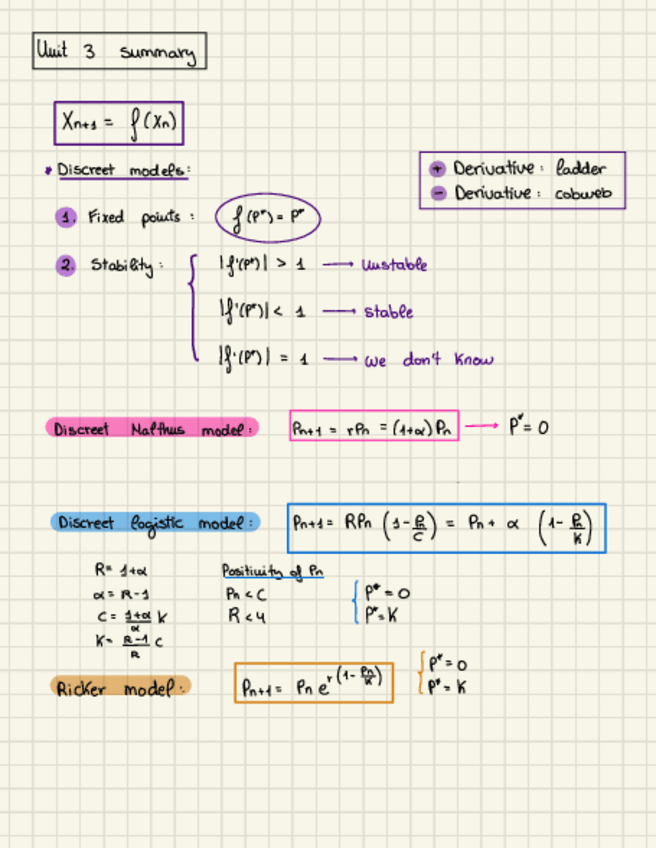 Unit 3 summary
Xn+1 = f(Xn)
* Discreet models:
+ Derivative: ladder
- Derivative: cobweb
1. Fixed points: f(P*) = P*
2. Stability:
|f'(P*)| > 1 → Unstable
|f'(P*)| < 1 → stable
|f'(P*)| = 1 → we don't know
Discreet Malthus model: Pn+1 = rPn = (1+α)Pn → P* = 0
Discreet logistic model: Pn+1 = RPn (1 - Pn/C) = Pn + α (1 - Pn/K)
R = 1+α
α = R-1
C = (1+α)/α K
K = (R-1)/R C
Positivity of Pn
Pn < C
R < 4
P* = 0
P* = K
Ricker model: Pn+1 = Pn e^r(1 - Pn/K)
P* = 0
P* = K